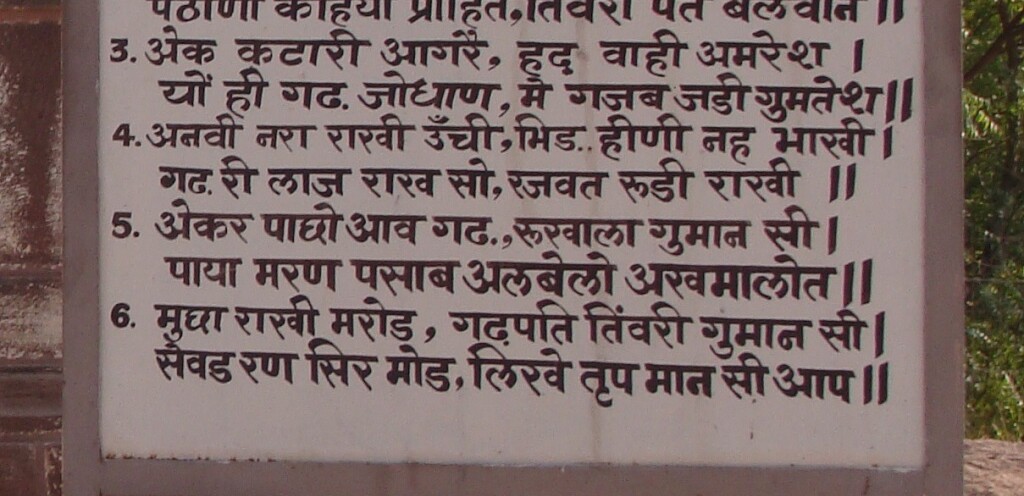 पठाणां कहियो प्रोहित, तिंवरी पत बलवान ||
3. अेक कटारी आगरै, हद वाही अमरेश |
यों ही गढ. जोधाण, में गजब जडी गुमतेश ||
4. अनवी नरा राखी उँची, भिड.. हीणी नह भाखी |
गढ. री लाज राख सो, रजवत रूडी राखी ||
5. अेकर पाछो आव गढ., रूखवाला गुमान सी |
पाया मरण पसाब अलबेलो अखमालोत ||
6. मुछा राखी मरोड़, गढ़पति तिंवरी गुमान सी |
सेवड रण सिर मोड, लिखे तृप मान सी आप ||